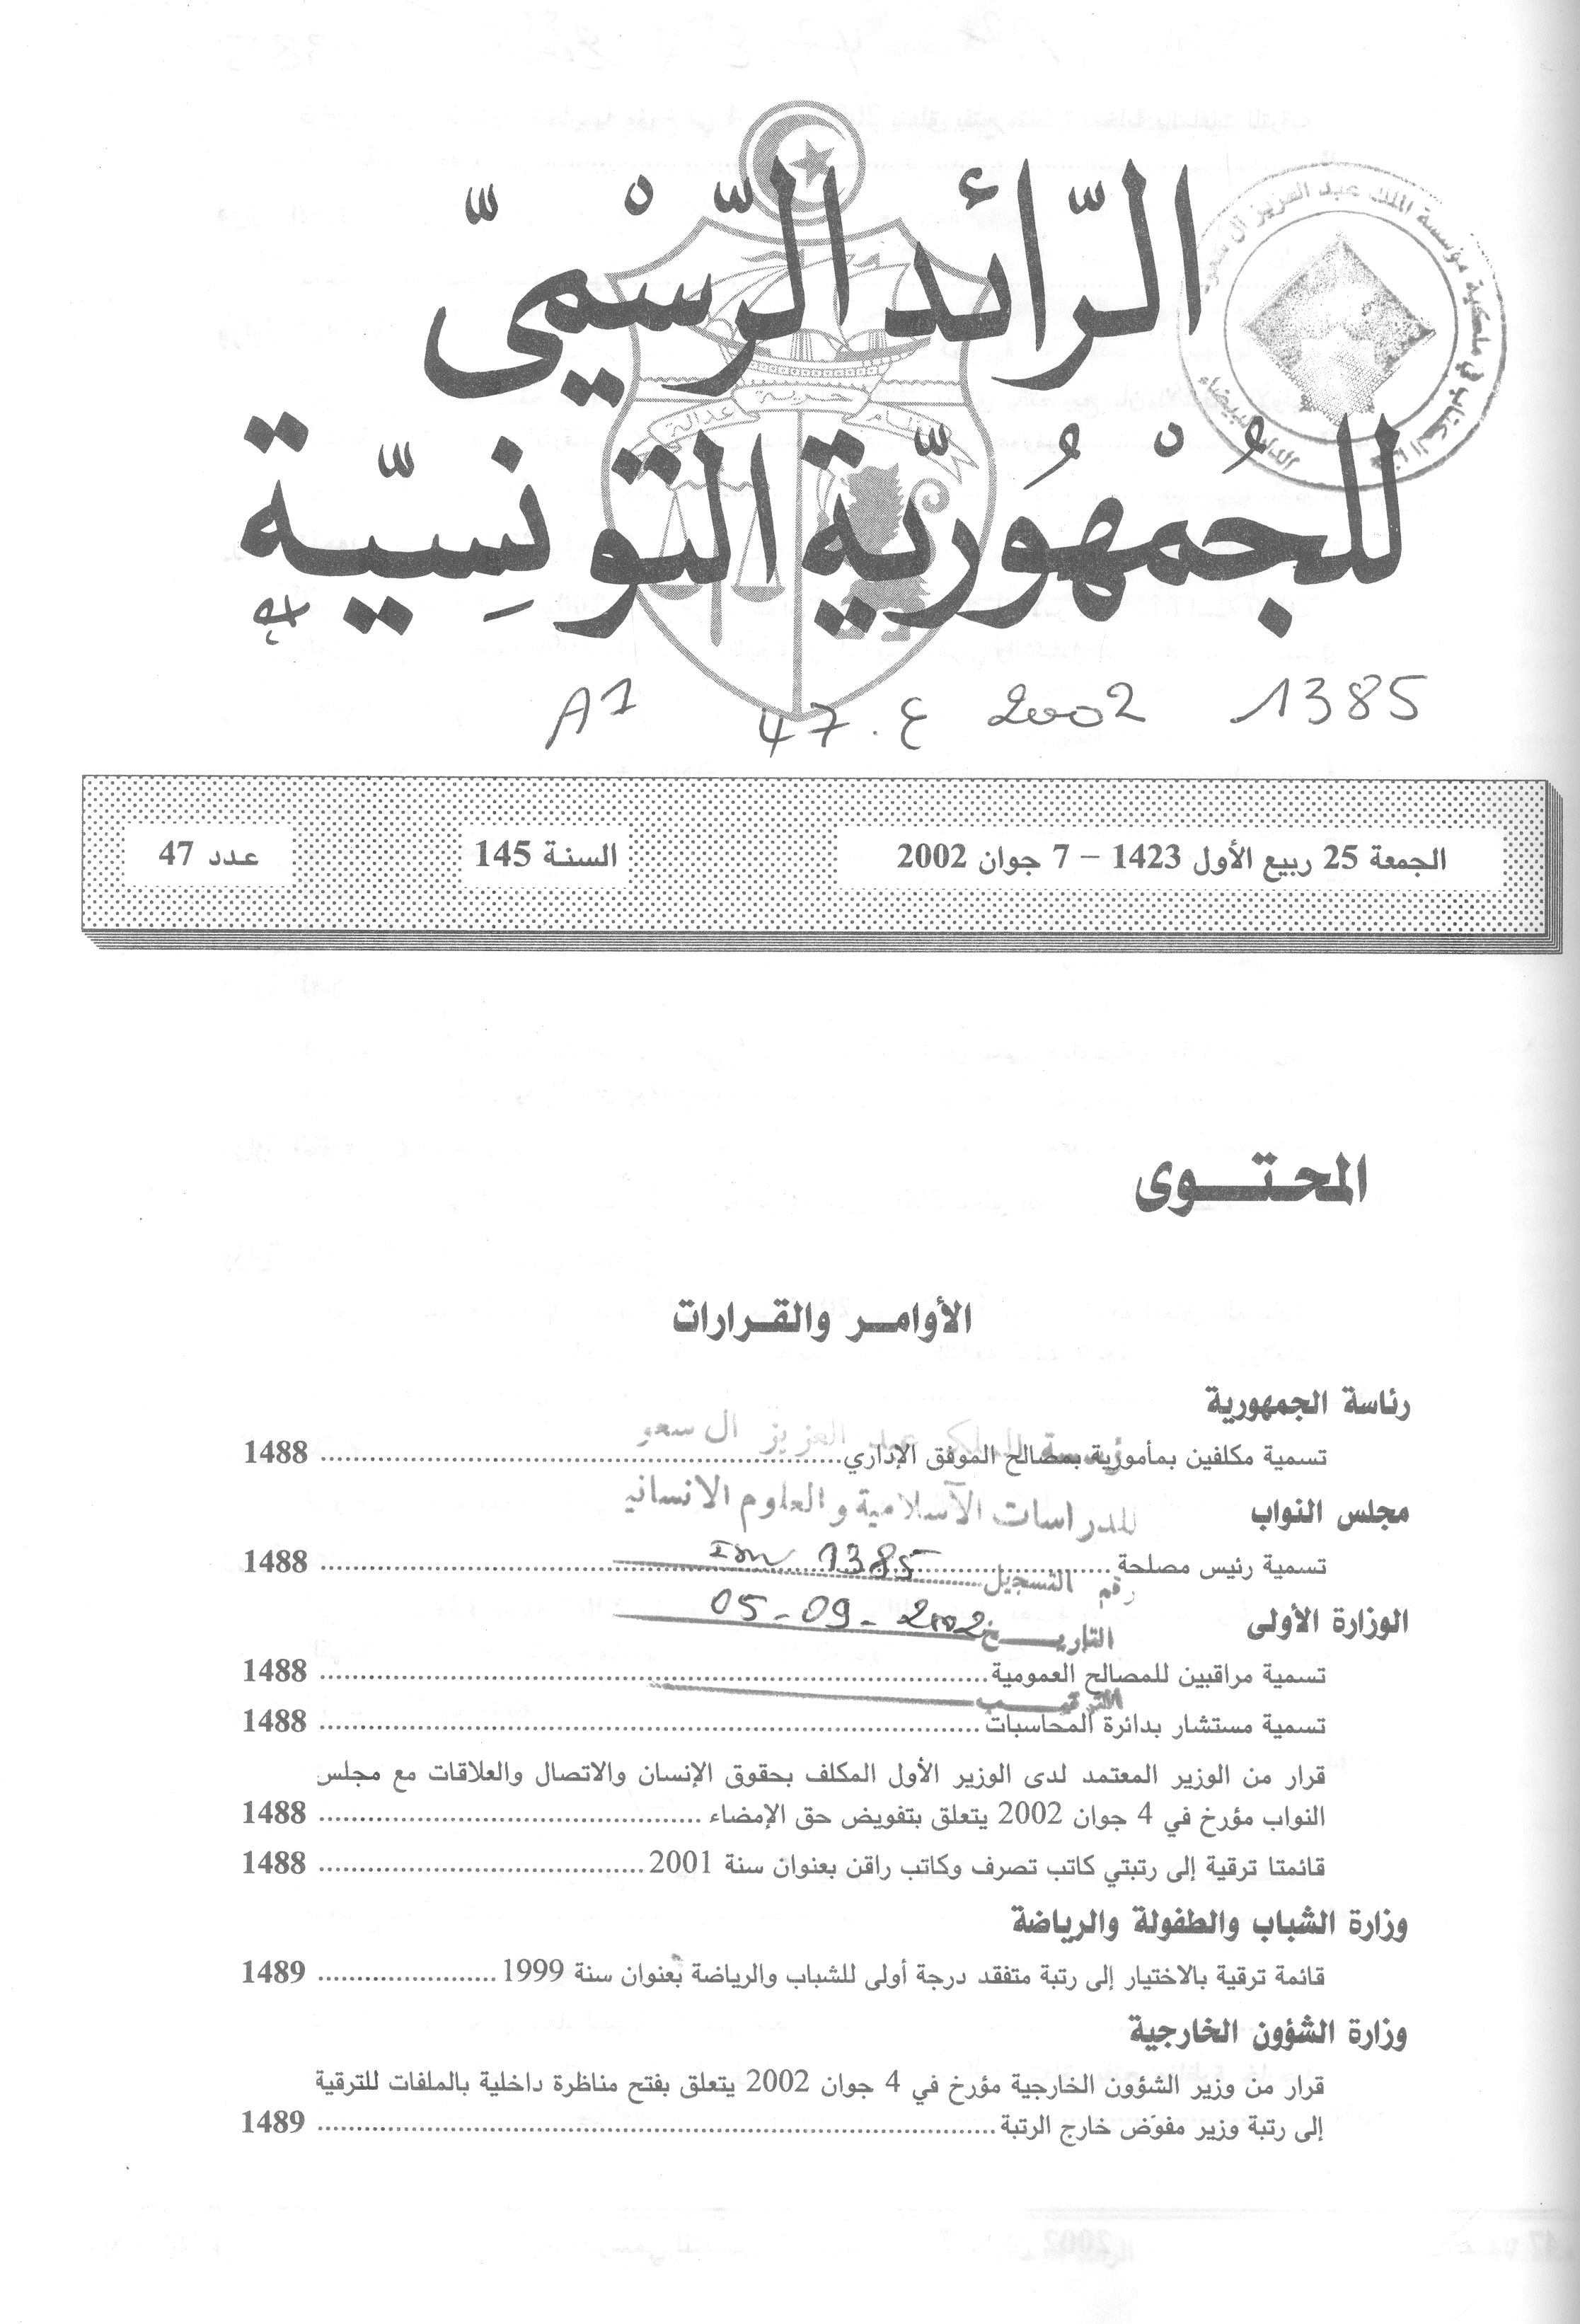 الرّائد الرّسْميّ
للجُمْهُوريّة التونِسيّة
نظام حرية عدالة
A1 47.ع 2002 1385
الجمعة 25 ربيع الأول 1423 – 7 جوان 2002
السنة 145
عدد 47
المحتوى
الأوامر والقرارات
رئاسة الجمهورية
تسمية مكلفين بمأمورية بمصالح الموفق الإداري 1488
مجلس النواب
تسمية رئيس مصلحة 1488
الوزارة الأولى
تسمية مراقبين للمصالح العمومية 1488
تسمية مستشار بدائرة المحاسبات 1488
قرار من الوزير المعتمد لدى الوزير الأول المكلف بحقوق الإنسان والاتصال والعلاقات مع مجلس
النواب مؤرخ في 4 جوان 2002 يتعلق بتفويض حق الإمضاء 1488
قائمتا ترقية إلى رتبتي كاتب تصرف وكاتب راقن بعنوان سنة 2001 1488
وزارة الشباب والطفولة والرياضة
قائمة ترقية بالاختيار إلى رتبة متفقد درجة أولى للشباب والرياضة بعنوان سنة 1999 1489
وزارة الشؤون الخارجية
قرار من وزير الشؤون الخارجية مؤرخ في 4 جوان 2002 يتعلق بفتح مناظرة داخلية بالملفات للترقية
إلى رتبة وزير مفوّض خارج الرتبة 1489
هذا الكتاب في ملكية مؤسسة الملك عبد العزيز آل سعود
الدار البيضاء
الملك عبد العزيز ال سعو
للدراسات الآسلامية والعلوم الانساني
رقم التسجيل 1385
التاريخ 05-09-2002
الترقيب